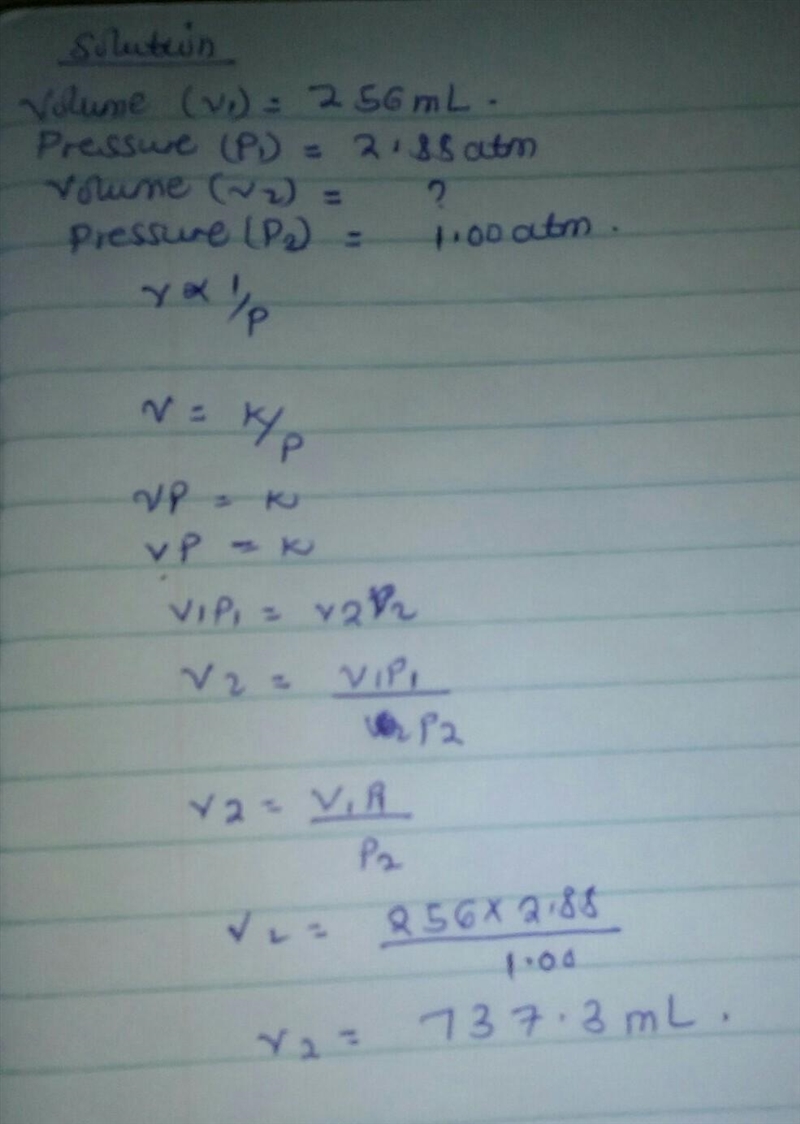 Solution
Volume (V1) = 256 mL.
Pressure (P1) = 2.88 atm
Volume (V2) = ?
Pressure (P2) = 1.00 atm.
V ∝ 1/P
V = K/P
VP = K
VP = K
V1P1 = V2P2
V2 = V1P1
P2
V2 = V1P1
P2
V2 = 256 × 2.88
1.00
V2 = 737.3 mL.